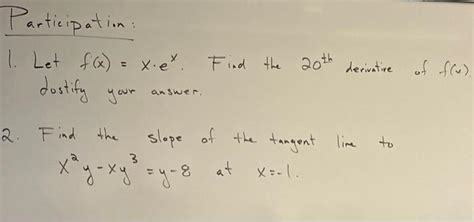 Participation:
1. Let f(x) = x·eˣ. Find the 20ᵗʰ derivative of f(x).
Justify your answer.
2. Find the slope of the tangent line to
x²y - xy³ = y - 8 at x = -1.